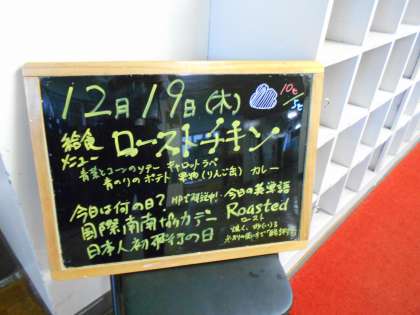 12月19日(木) 10℃/5℃
給食メニュー ローストチキン
青菜とコーンのソテー キャロットラペ
青のりのポテト 果物(りんご缶) カレー
今日は何の日? HPで解説中!
国際南南協力デー
日本人初飛行の日
今日の英単語
Roasted
ロースト
焼く、炒(い)る